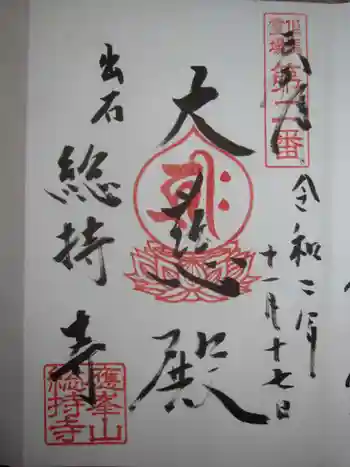 但馬
霊場
第二番
令和二年
十一月十七日
大悲殿
出石
総持寺
應峯山
総持寺